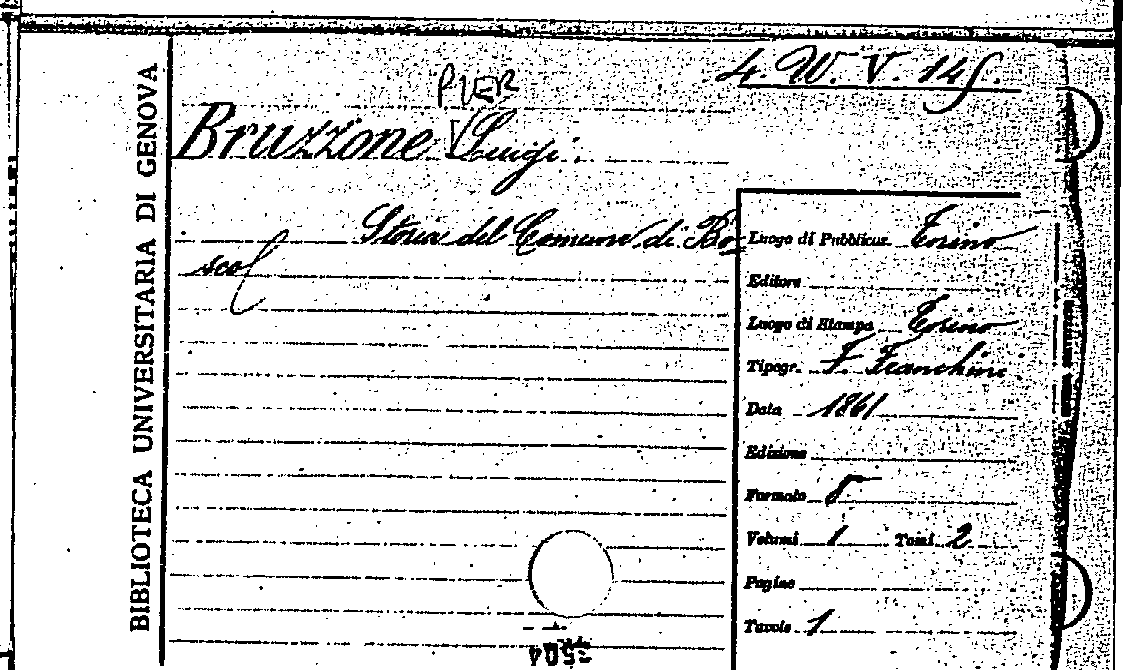 BIBLIOTECA UNIVERSITARIA DI GENOVA
4. W. V. 145.
PIER
Bruzzone Luigi.
Storia del Comune di Bo-
sco
Luogo di Pubblicaz. Torino
Editore
Luogo di Stampa Torino
Tipogr. F. Franchini
Data 1861
Edizione
Formato 8°
Volumi 1 Tomi 2
Pagine
Tavole 1